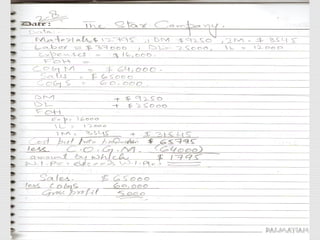 Date: The Star Company.
Data
Materials $12795, DM $9250, IM = 3545
Labor = $37000, DL = 25000, IL = 12000
Expenses = $16,000
FOH =
COGM = $64,000.
Sales = $65000
COGS = 60,000.
DM + $9250
DL + $25000
FOH
exp: 16000
IL = 12000
IM = 3545 + $31545
Cost put into $65795
less C.O.G.M. (64000)
amount by which $1795
Sales $65000
less COGS 60,000
Gross profit 5000
PALMATIAN